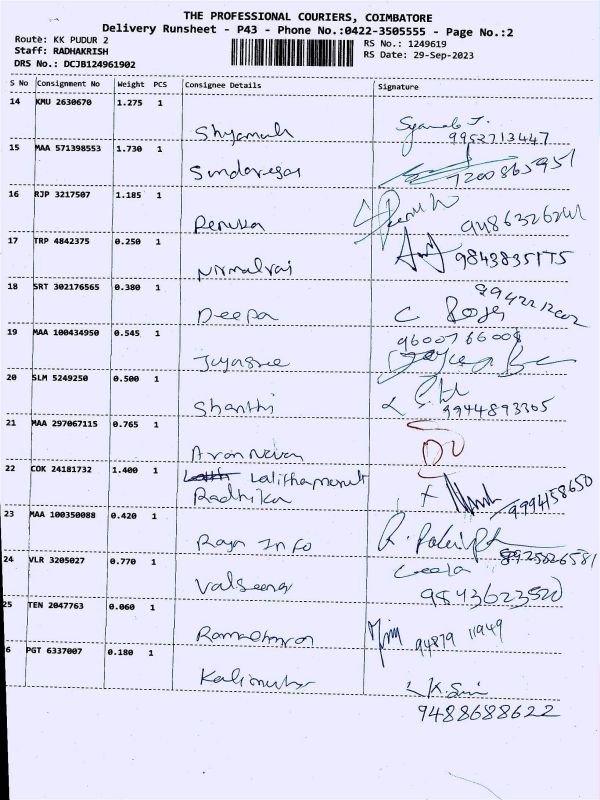 THE PROFESSIONAL COURIERS, COIMBATORE
Delivery Runsheet - P43 - Phone No.:0422-3505555 - Page No.:2
Route: KK PUDUR 2
RS No.: 1249619
Staff: RADHAKRISH
RS Date: 29-Sep-2023
DRS No.: DCJB124961902
S No Consignment No Weight PCS Consignee Details Signature
14 KMU 2630670 1.275 1
Shyamala
9952713447
15 MAA 571398553 1.730 1
Sundaresan
7200865951
16 RJP 3217507 1.185 1
Renuka
17 TRP 4842375 0.250 1
Nirmalraj 9843835175
18 SRT 302176565 0.380 1
Deepa
19 MAA 100434950 0.545 1
9600766008
Jayasree
20 SLM 5249250 0.500 1
Shanthi 9944893305
21 MAA 297067115 0.765 1
22 COK 24181732 1.400 1
Radhika 9994158650
23 MAA 100350088 0.420 1
Raja Info
24 VLR 3205027 0.770 1
Leela
9543623520
25 TEN 2047763 0.060 1
94879 11949
6 PGT 6337007 0.180 1
Kalimuthu
9488688622